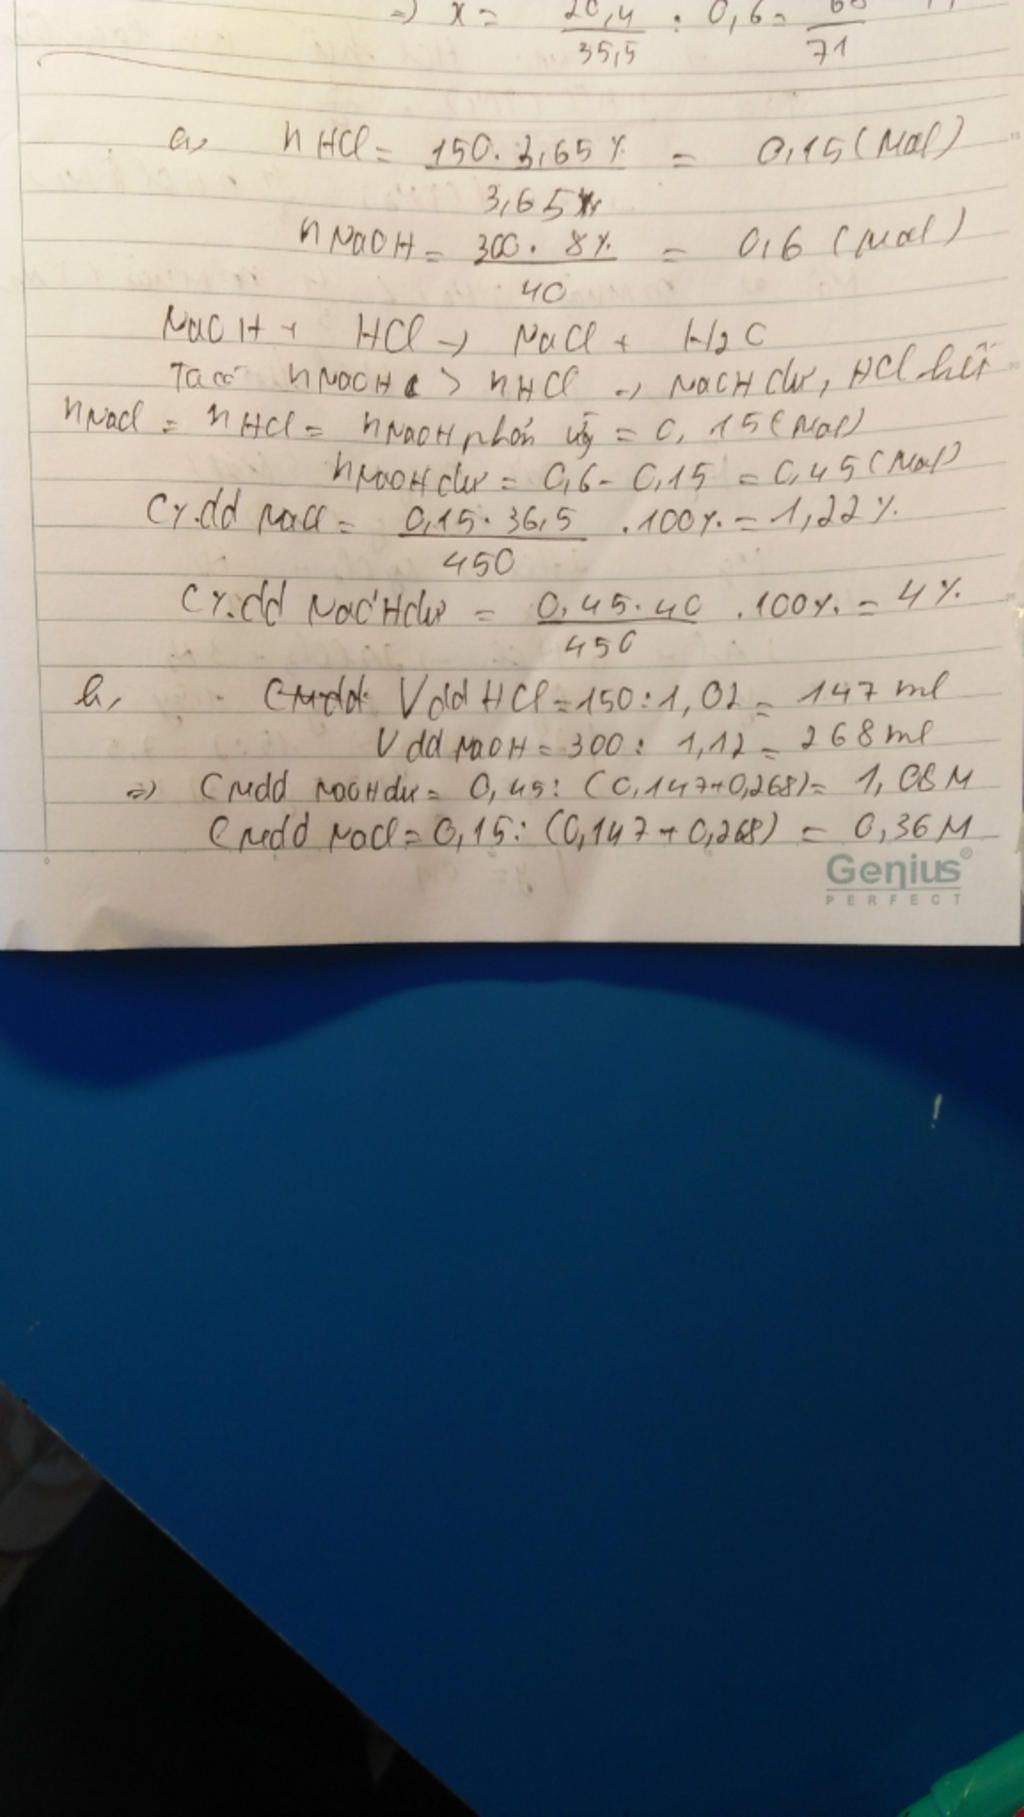 =) x = 20,4 / 35,5 : 0,6 = / 71
a, nHCl = 150. 3,65% / 3,65 = 0,15 (mol)
nNaOH = 300. 8% / 40 = 0,6 (mol)
NaOH + HCl -> NaCl + H2O
Ta có nNaOH > nHCl -> NaOH dư, HCl hết
nNaCl = nHCl = nNaOH phản ứg = 0,15 (mol)
nNaOH dư = 0,6 - 0,15 = 0,45 (mol)
C%.dd NaCl = 0,15.36,5 / 450 .100% = 1,22%
C%.dd NaOH dư = 0,45.40 / 450 .100% = 4%
b, Vdd HCl = 150 : 1,02 = 147 ml
Vdd NaOH = 300 : 1,12 = 268 ml
=) CMdd NaOH dư = 0,45 : (0,147+0,268) = 1,08M
CMdd NaCl = 0,15 : (0,147 + 0,268) = 0,36M
Genius®
PERFECT